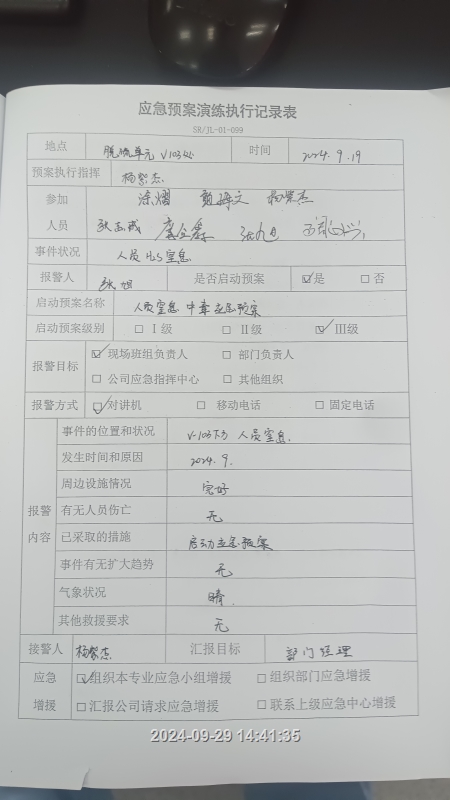 应急预案演练执行记录表
SR/JL-01-099
地点 脱硫单元 V103处 时间 2024.9.19
预案执行指挥 杨紫杰.
参加 涂熠 杨紫杰
人员
事件状况 人员H2S窒息
报警人 张旭 是否启动预案 ☑是 □否
启动预案名称 人员窒息 中毒应急预案
启动预案级别 □Ⅰ级 □Ⅱ级 ☑Ⅲ级
报警目标 ☑现场班组负责人 □部门负责人
□公司应急指挥中心 □其他组织
报警方式 ☑对讲机 □移动电话 □固定电话
报警内容
事件的位置和状况 V-103下方 人员窒息.
发生时间和原因 2024.9.
周边设施情况 完好
有无人员伤亡 无
已采取的措施 启动应急预案
事件有无扩大趋势 无
气象状况 晴.
其他救援要求 无
接警人 杨紫杰 汇报目标 部门经理
应急 ☑组织本专业应急小组增援 □组织部门应急增援
增援 □汇报公司请求应急增援 □联系上级应急中心增援
2024-09-29 14:41:35